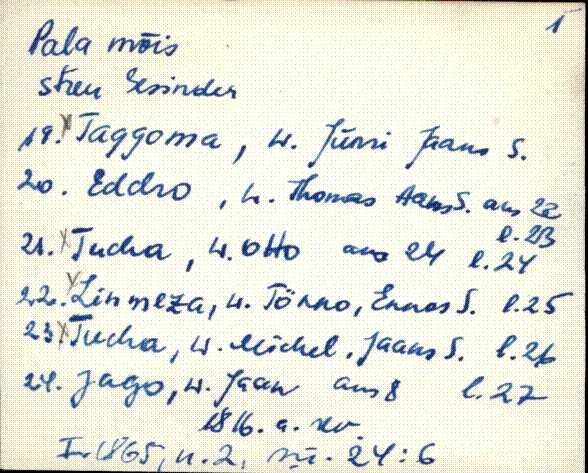 1
Pala mõis
streu Gesinder
19. Taggoma, w. Jürri Jaans S.
20. Eddro, w. Thomas Aans S. aus 22
l. 23
21. Tucha, w. Otto aus 24 l. 24
22. Linmeza, w. Tönno, Ennos S. l. 25
23. Tucha, w. Michel, Jaans S. l. 26
24. Jago, w. Jaan aus 8 l. 27
1816. a. rev.
1865, n. 2, 24:6